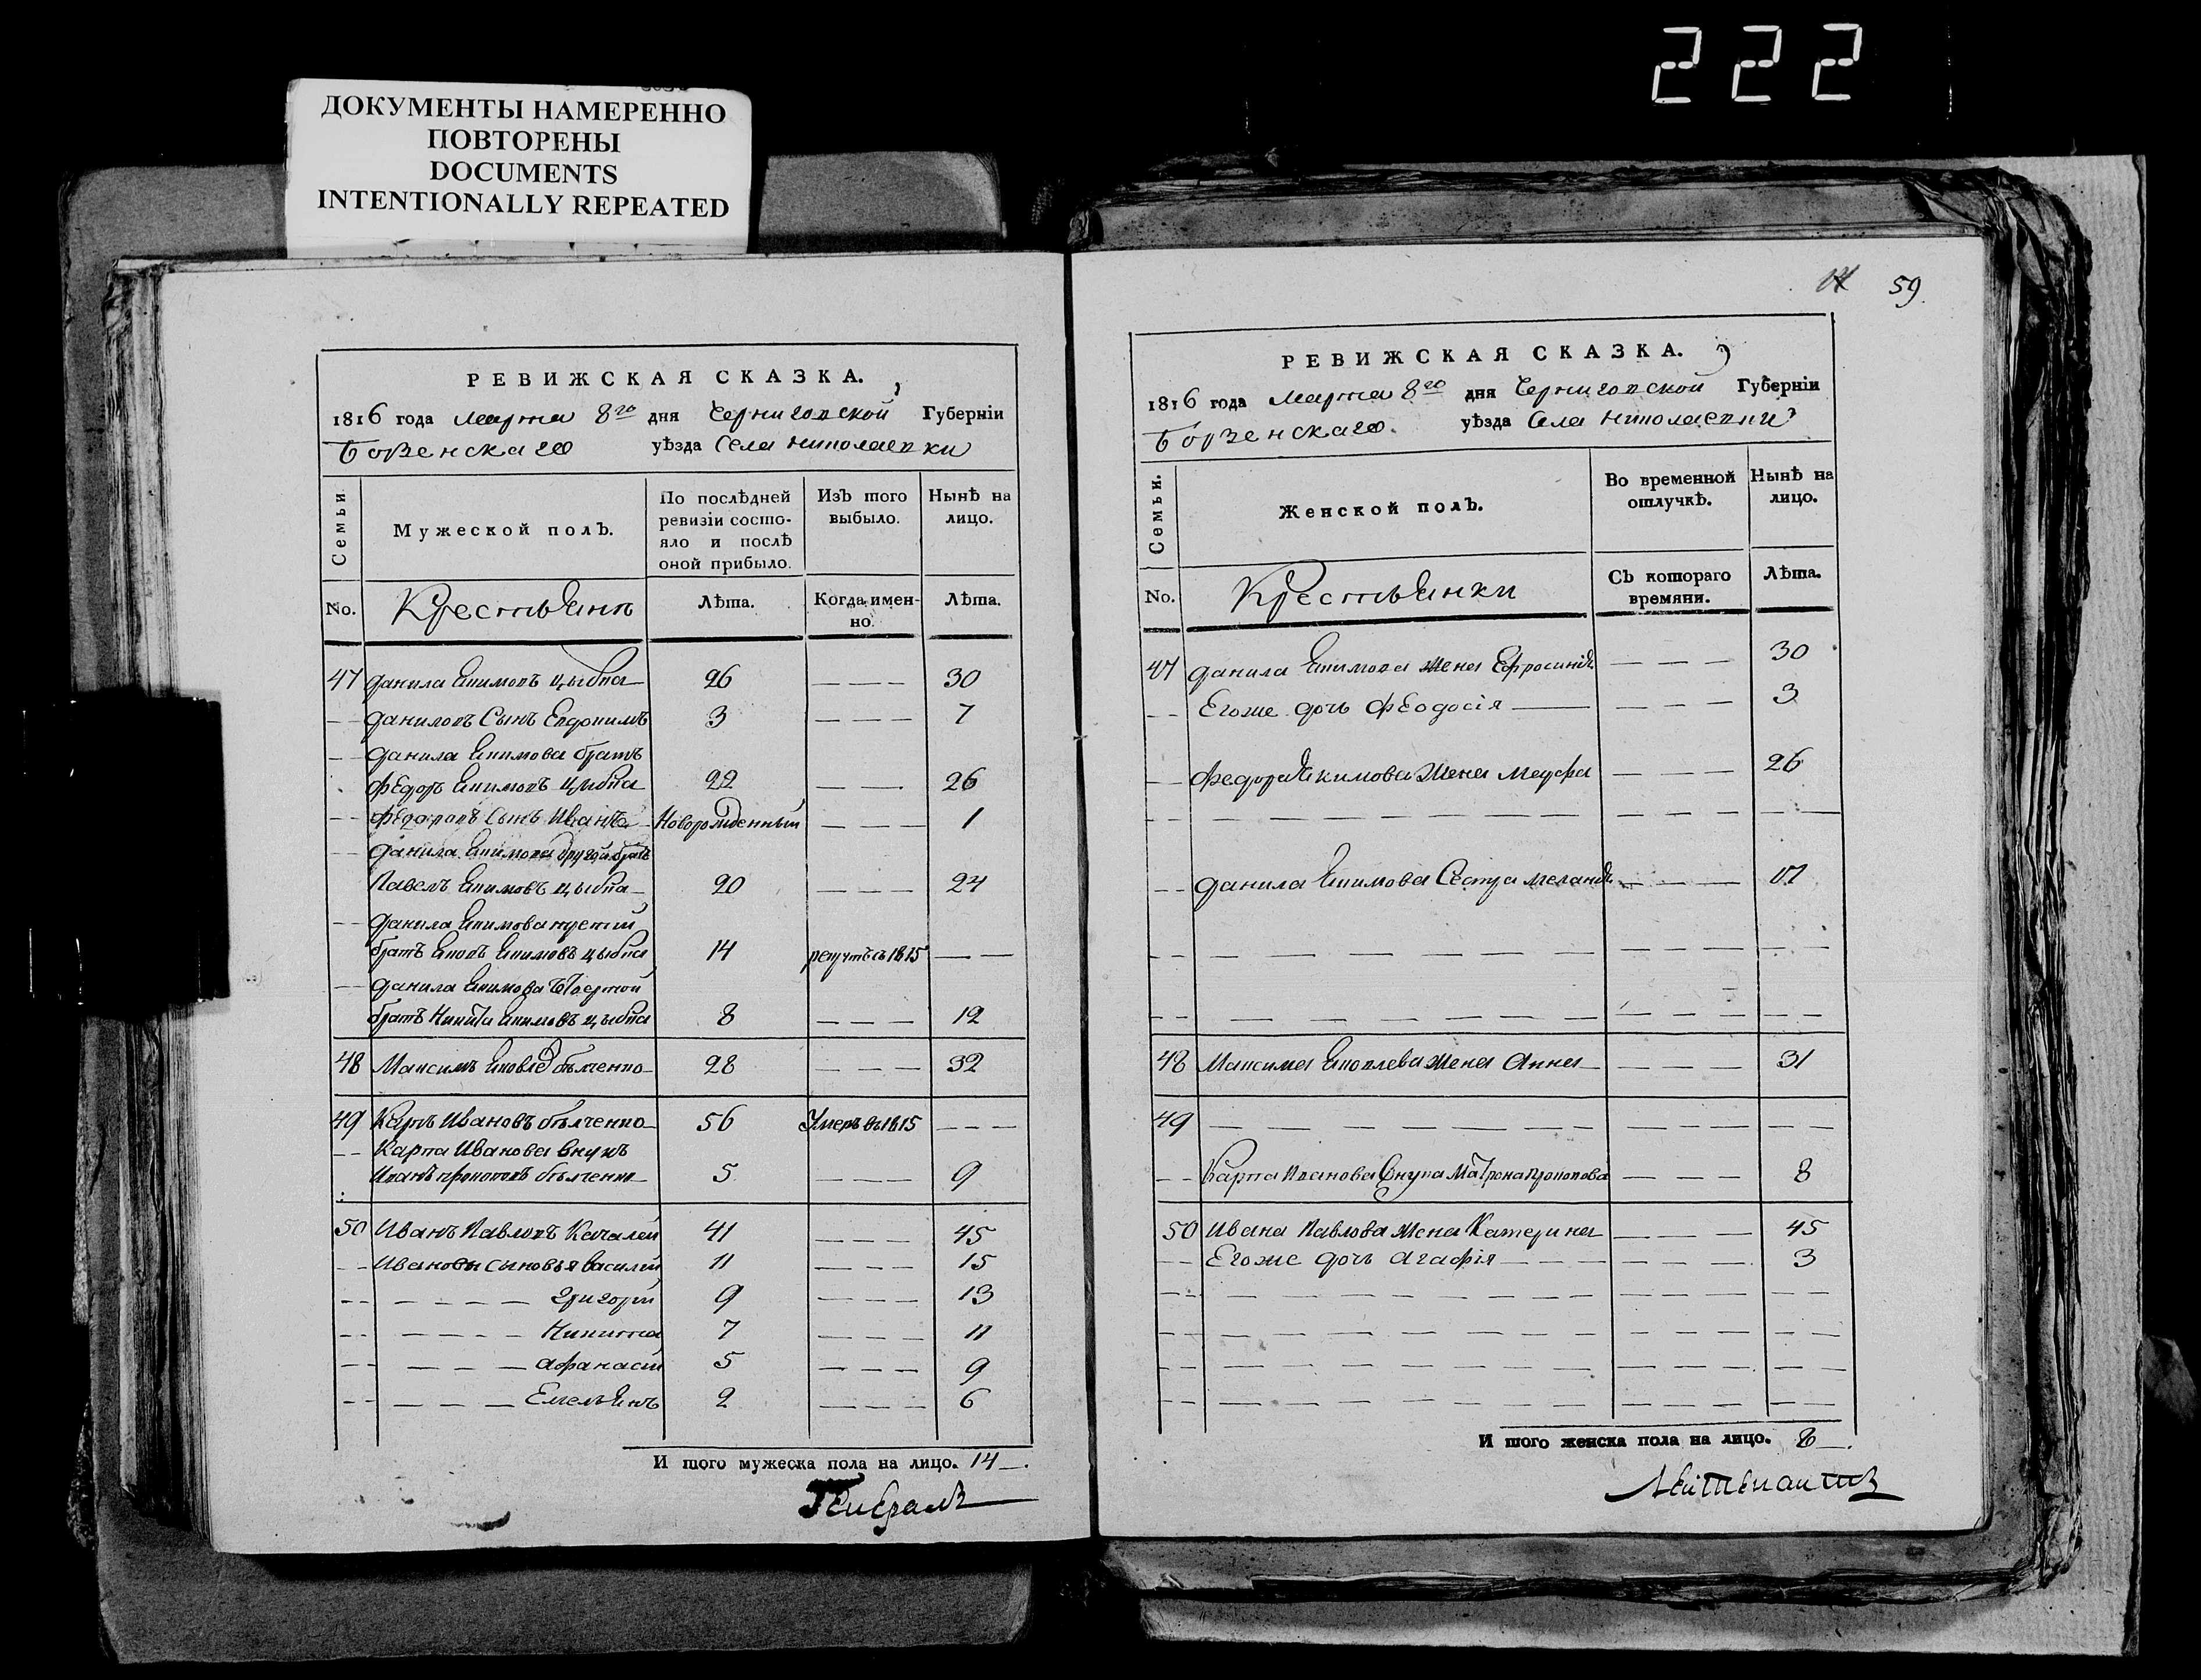 222
ДОКУМЕНТЫ НАМЕРЕННО
ПОВТОРЕНЫ
DOCUMENTS
INTENTIONALLY REPEATED
РЕВИЖСКАЯ СКАЗКА.
1816 года марта 8го дня Черниговской Губерніи
Борзенскаго уѣзда Села николаевки
Семьи.
Мужеской полъ.
По послѣдней ревизіи состо-
яло и послѣ оной прибыло.
Изъ того выбыло.
Нынѣ на лицо.
No. Крестьянъ Лѣта. Когда имен-
но. Лѣта.
47 данила Якимовъ цыбка 26 — — — 30
— — даниловъ Сынъ Евдокимъ 3 — — — 7
— — данила Якимова братъ
Федоръ Якимовъ цыбка 22 — — 26
— — Федоровъ Сынъ Иванъ Новорожденный — — — 1
— — данила Якимова другой братъ
Павелъ Якимовъ цыбка 20 — — — 24
— — данила Якимова третий
братъ Яковъ Якимовъ цыбка 14 рекрутъ съ 1815 — —
— — данила Якимова
братъ Никита Якимовъ цыбка 8 — — — 12
48 Максимъ бѣлченко 28 — — — 32
49 Карпъ Ивановъ бѣлченко 56 Умеръ въ 1815 — — —
— — Карпа Иванова внукъ
Иванъ прокоповъ бѣлченко 5 — — — 9
50 Иванъ Павловъ Качалей 41 — — — 45
— — Ивановы сыновья василій 11 — — — 15
— — — — — — григорій 9 — — — 13
— — — — — — Никита 7 — — — 11
— — — — — афанасій 5 — — — 9
— — — — — Емельянъ 2 — — — 6
И того мужеска пола на лицо. 14 —.
Генералъ
59.
РЕВИЖСКАЯ СКАЗКА.
1816 года марта 8го дня Черниговской Губерніи
Борзенскаго. уѣзда Села николаевки
Семьи.
Женской полъ.
Во временной отлучкѣ.
Нынѣ на лицо.
No. Крестьянки Съ котораго времяни. Лѣта.
47 данила Якимова жена Ефросинія — — — 30
— — Егоже дочь Феодосія — — — — 3
— — Федора Якимова жена Марфа — — — 26
— — данила Якимова Сестра меланія — — —
48 Максима Яковлева жена Анна — — — 31
49 — — — — — — — —
— — Карпа Иванова внука Матрона прокопова — — — 8
50 Ивана Павлова жена Катерина — — — 45
— — Егоже дочь агафія — — — — — — 3
И того женска пола на лицо. 8 —.
Лейтенантъ